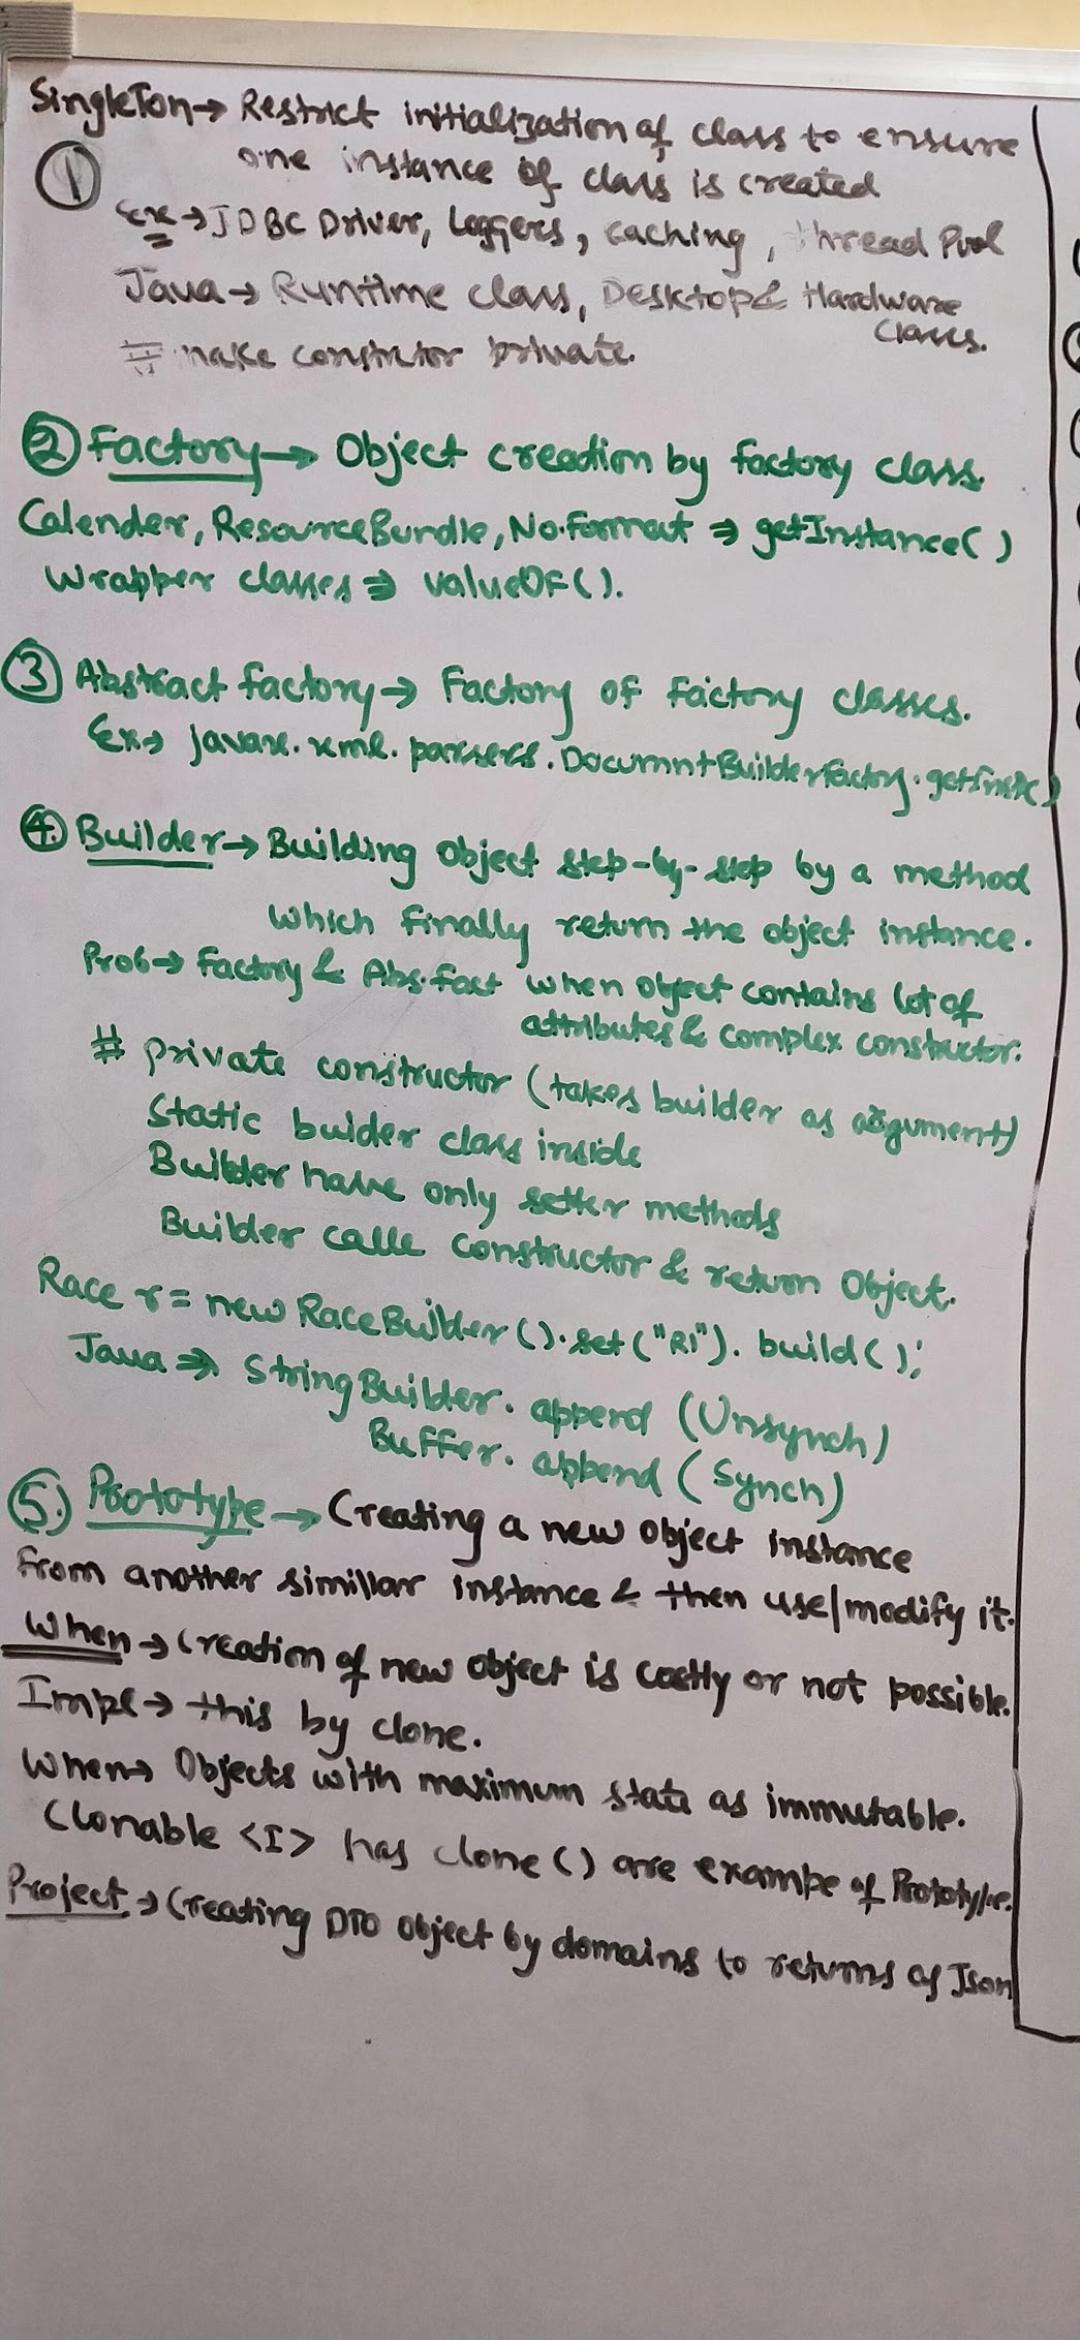 SingleTon→ Restrict initialization of class to ensure
① one instance of class is created
Ex→ JDBC Driver, Loggers, caching, thread Pool
Java→ Runtime class, Desktop & Hardware
Class.
# make construtor private.
② Factory→ Object creation by factory class.
Calender, ResourceBundle, No.Format ⇒ getInstance()
Wrapper classes ⇒ valueOF().
③ Abstract factory→ Factory of Factory classes.
Ex→ javax.xml.parsers.DocumntBuilderFactory.
④ Builder→ Building Object step-by-step by a method
which finally return the object instance.
Prob→ factory & Abs.fact when object contains lot of
attributes & complex constructor.
# private constructor (takes builder as argument)
Static buider class inside
Builder have only setter methods
Builder calls constructor & return Object.
Race r = new RaceBuilder().set("R1").build();
Java ⇒ StringBuilder.append (Unsynch)
Buffer.append (Synch)
⑤ Prototype→ Creating a new object instance
from another simillar instance & then use/modify it.
When→ Creation of new object is costly or not possible.
Impl→ this by clone.
When→ Objects with maximum state as immutable.
Clonable <I> has clone() are exampe of Prototype.
Project→ Creating DTO object by domains to returns as Json